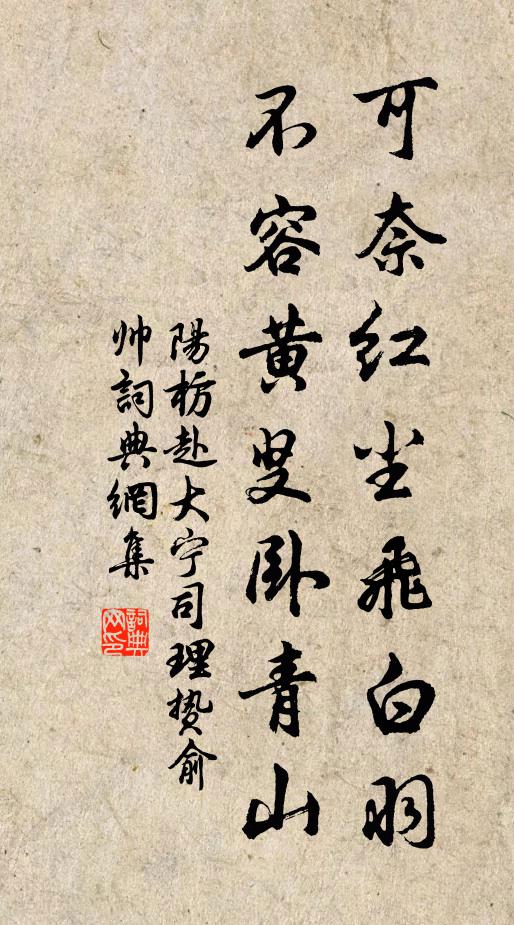 可奈红尘飛白羽
不容黄叟卧青山
陽枋赴大宁司理贽俞
帅詞典網集
詞典网印